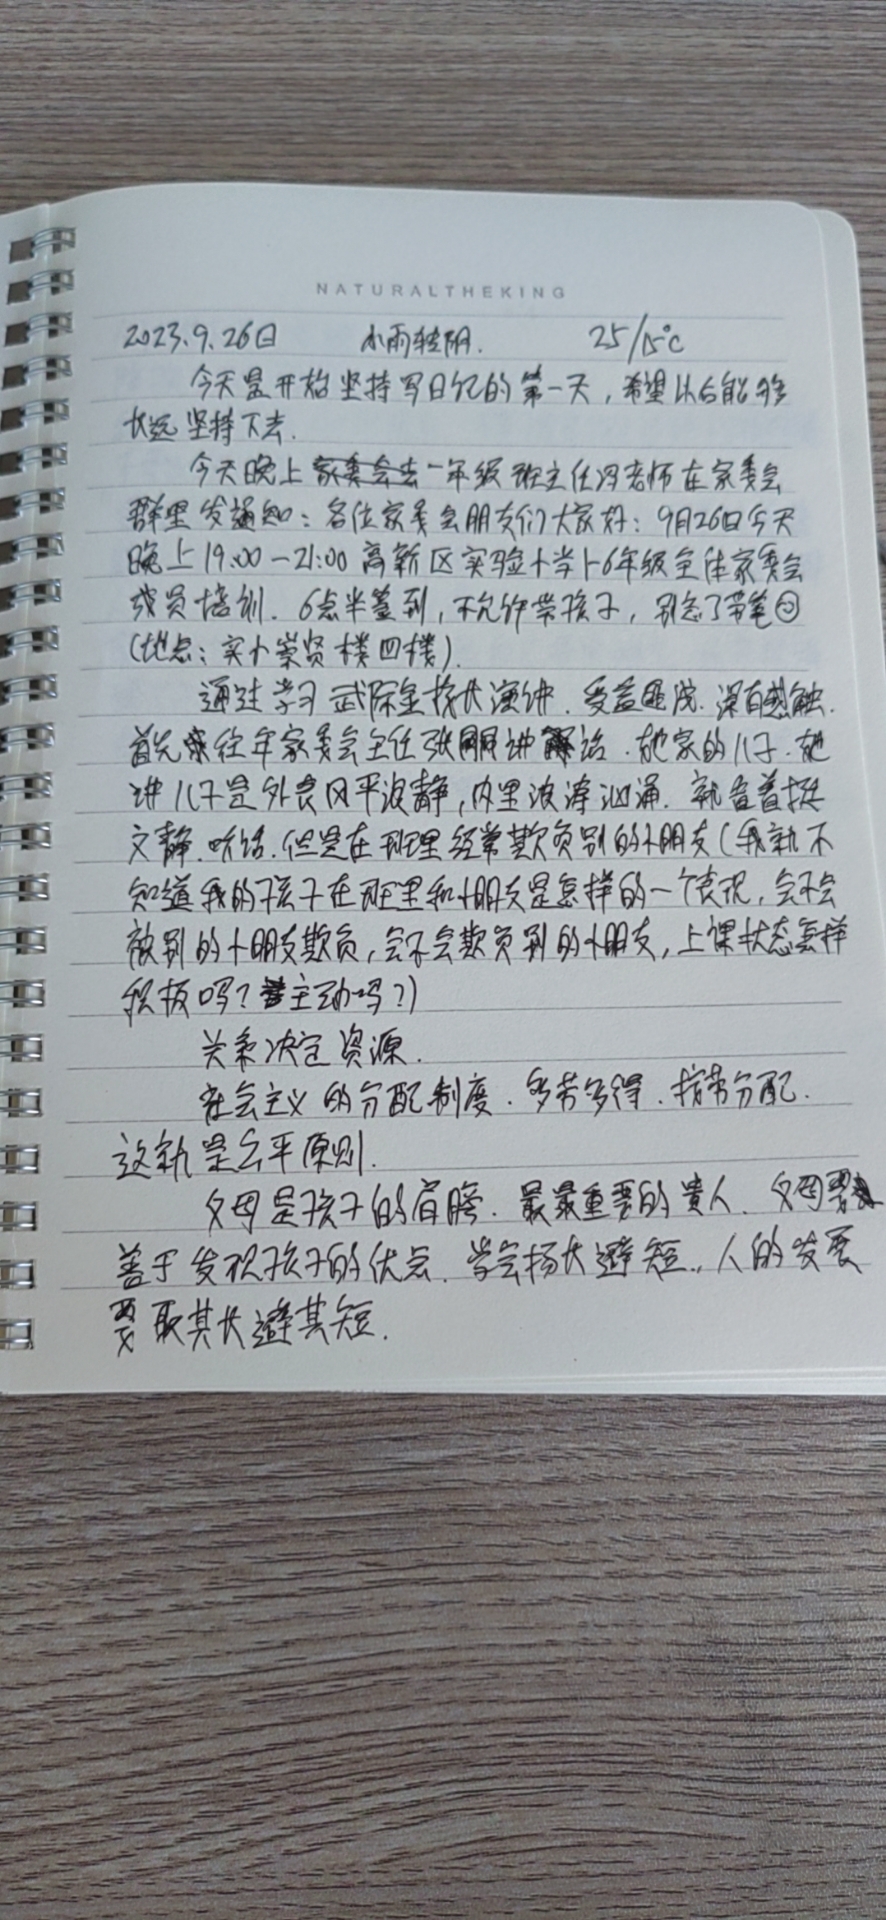 NATURALTHEKING
2023.9.26日 小雨转阴. 25/15℃
今天是开始坚持写日记的第一天，希望以后能够
长远坚持下去.
今天晚上 一年级班主任冯老师在家委会
群里发通知：各位家委会朋友们大家好：9月26日今天
晚上19:00-21:00高新区实验小学1-6年级全体家委会
成员培训. 6点半签到，不允许带孩子，别忘了带笔
(地点：实小崇贤楼四楼).
通过学习武际金校长演讲.受益匪浅.深有感触.
首先 往年家委会主任张鹏讲话.她家的儿子.她
讲儿子是外表风平波静，内里波涛汹涌.就告着挺
文静.听话.但是在班里经常欺负别的小朋友(我就不
知道我的孩子在班里和小朋友是怎样的一个表现，会不会
被别的小朋友欺负，会不会欺负别的小朋友，上课状态怎样
积极吗？主动吗？)
关系决定资源.
社会主义的分配制度.多劳多得.按劳分配.
这就是公平原则.
父母是孩子的肩膀.最最重要的贵人.父母要
善于发现孩子的优点.学会扬长避短..人的发展
要取其长避其短.